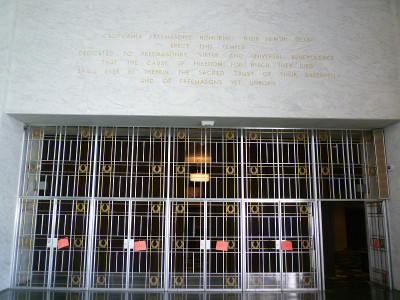 CALIFORNIA FREEMASONS HONORING THEIR HEROIC DEAD
ERECT THIS TEMPLE
DEDICATED TO FREEMASONRY, VIRTUE AND UNIVERSAL BENEVOLENCE
THAT THE CAUSE OF FREEDOM FOR WHICH THEY DIED
SHALL EVER BE THEREIN THE SACRED TRUST OF THEIR BRETHREN
AND OF FREEMASONS YET UNBORN